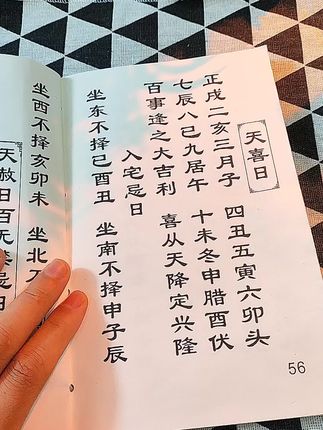 天喜日
正戌二亥三月子 四丑五寅六卯头
七辰八己九居午 十未冬申腊酉伏
百事逢之大吉利 喜从天降定兴隆
入宅忌日
坐东不择己酉丑 坐南不择申子辰
56
坐西不择亥卯未 坐北不
天赦日百无禁忌日